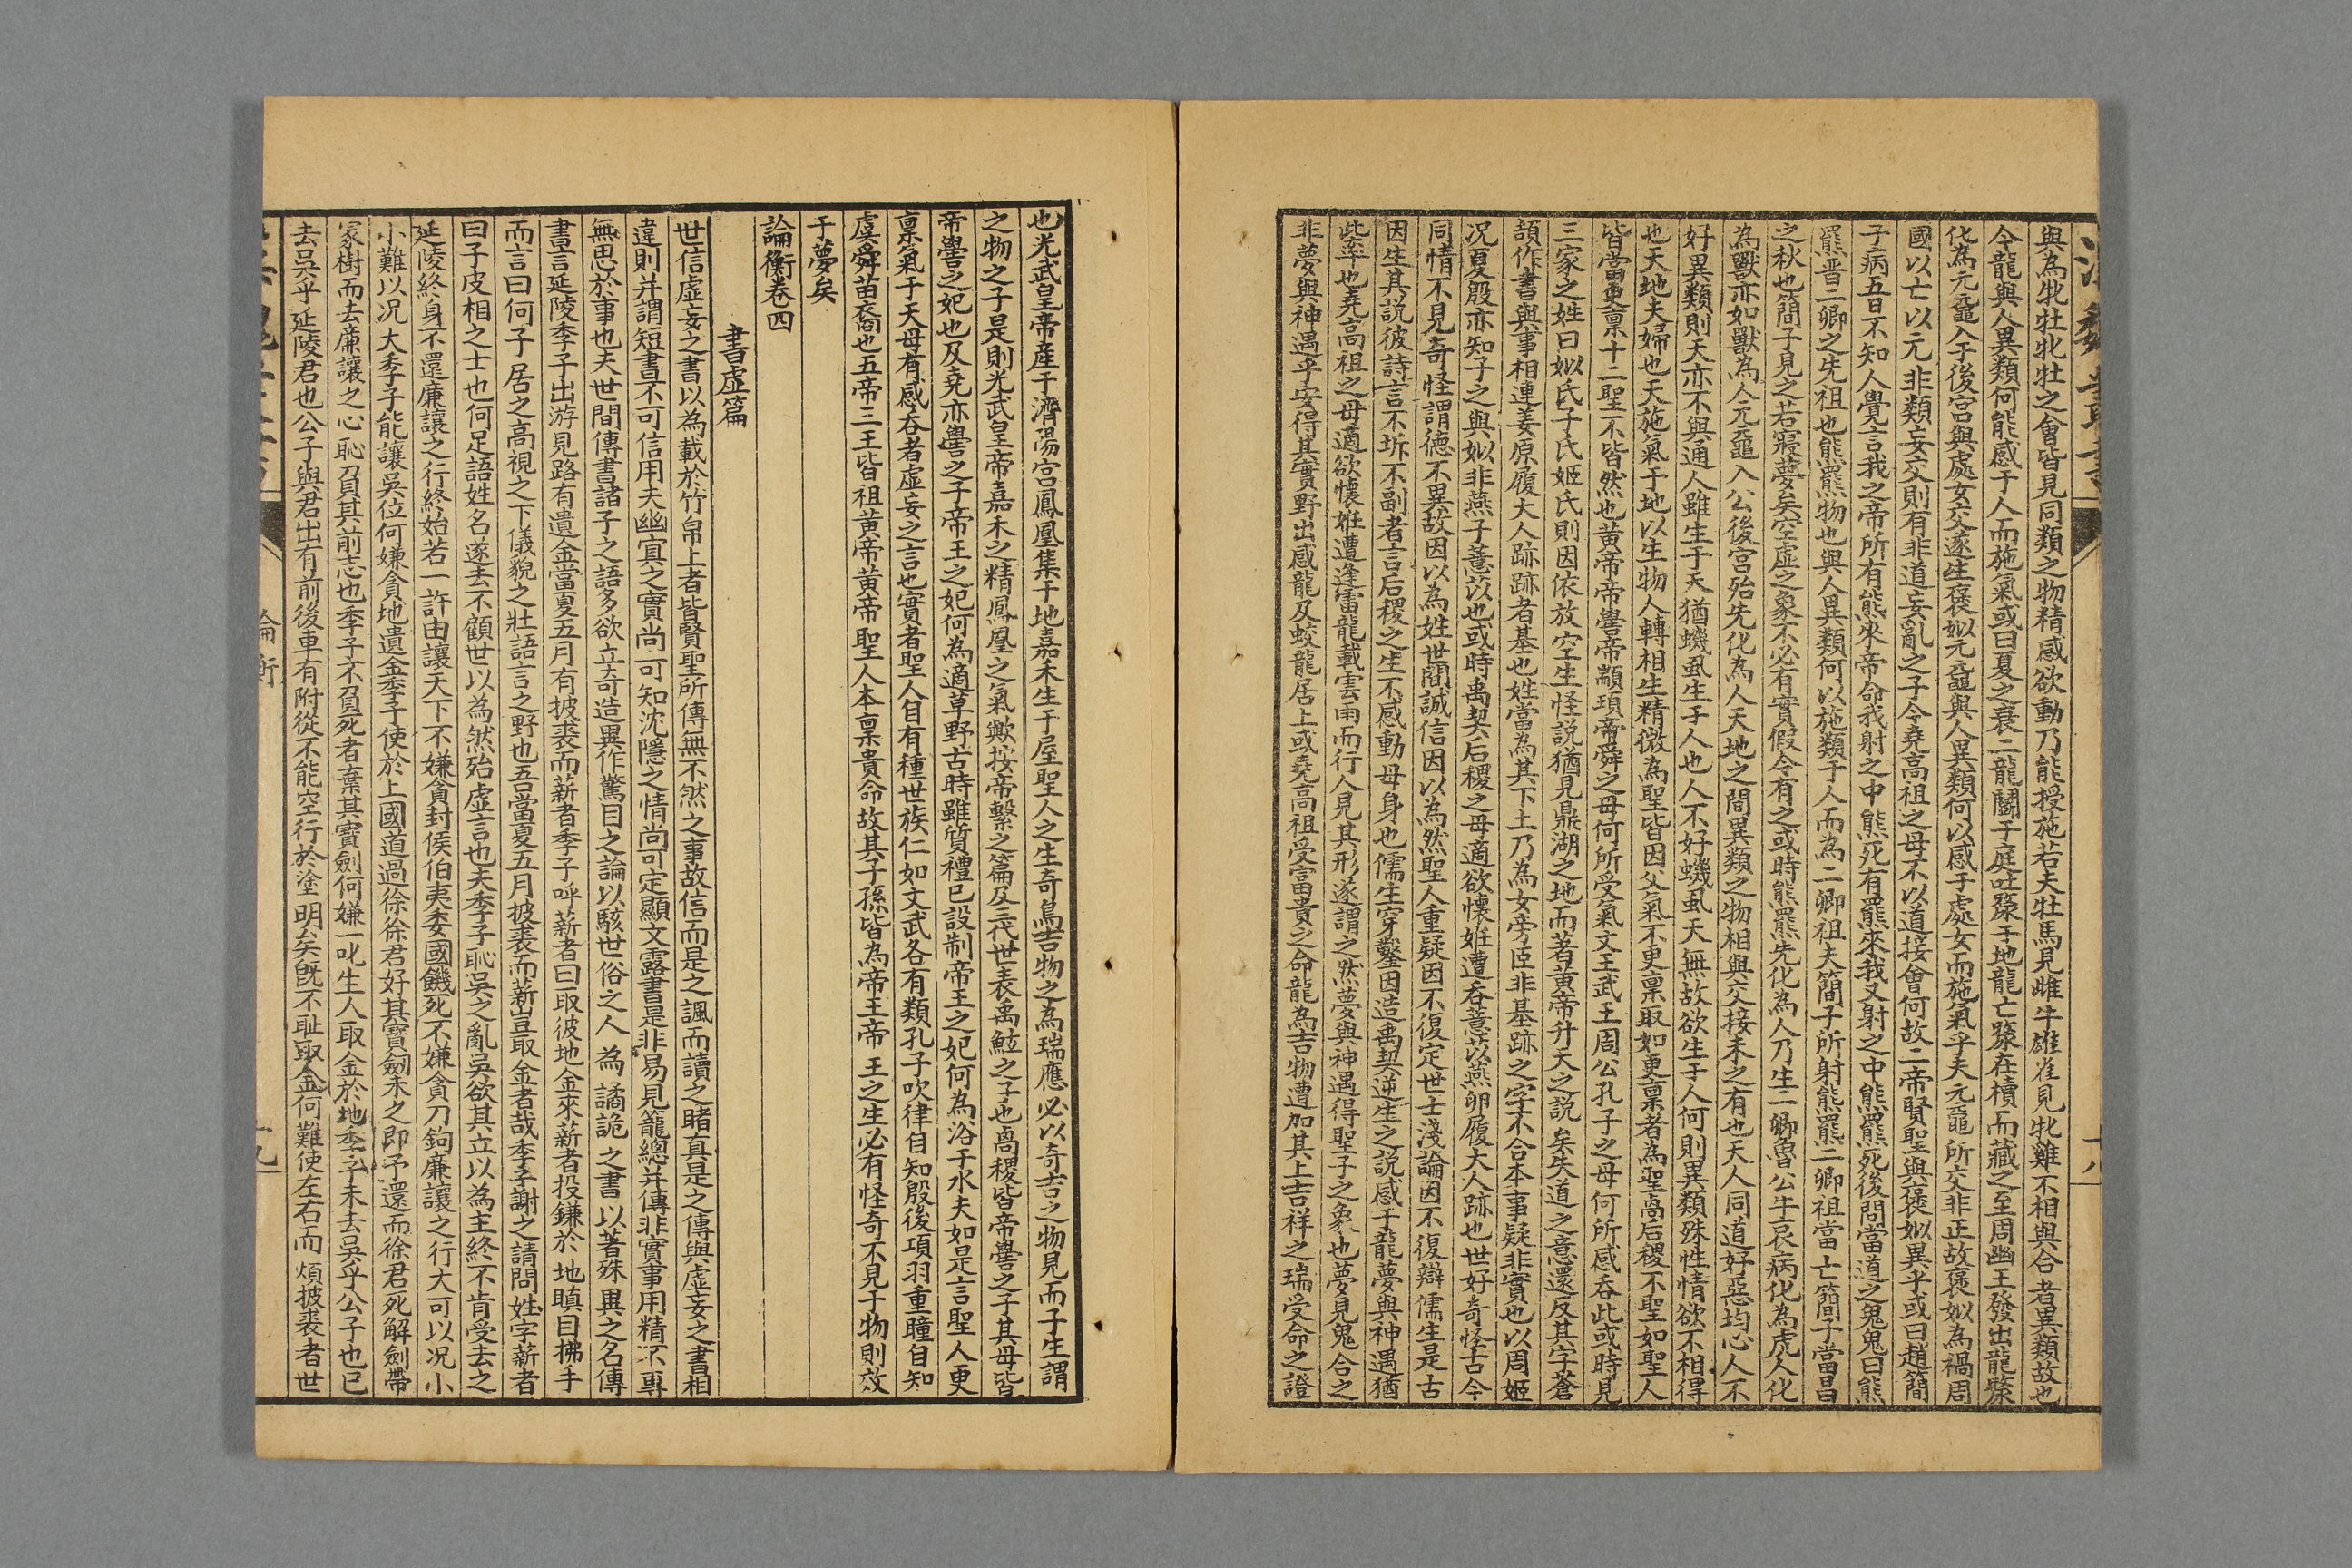 與為牝牡牝牡之會皆見同類之物精感欲動乃能授施若夫牡馬見雌牛雄雀見牝雞不相與合者異類故也
今龍與人異類何能感于人而施氣或曰夏之衰二龍鬬于庭吐漦于地龍亡漦在櫝而藏之至周幽王發出龍漦
化為元黿入于後宮與處女交遂生褒姒元黿與人異類何以感于處女而施氣乎夫元黿所交非正故褒姒為禍周
國以亡以元非類妄交則有非道妄亂之子今堯高祖之母不以道接會何故二帝賢聖與褒姒異乎或曰趙簡
子病五日不知人覺言我之帝所有熊來帝命我射之中熊死有羆來我又射之中熊羆死後問當道之鬼鬼曰熊
羆晋二卿之先祖也熊羆物也與人異類何以施類于人而為二卿祖夫簡子所射熊羆二卿祖當亡簡子當昌
之秋也簡子見之若寢夢矣空虛之象不必有實假令有之或時熊羆先化為人乃生二卿魯公牛哀病化為虎人化
為獸亦如獸為人元黿入公後宮殆先化為人天地之間異類之物相與交接未之有也天人同道好惡均心人不
好異類則天亦不與通人雖生于天猶蟣虱生于人也人不好蟣虱天無故欲生于人何則異類殊性情欲不相得
也天地夫婦也天施氣于地以生物人轉相生精微為聖皆因父氣不更禀取如更禀者為聖卨后稷不聖如聖人
皆當更禀十二聖不皆然也黄帝帝嚳帝顓頊帝舜之母何所受氣文王武王周公孔子之母何所感吞此或時見
三家之姓曰姒氏子氏姬氏則因依放空生怪説猶見鼎湖之地而著黄帝升天之説矣失道之意還反其字蒼
頡作書與事相連姜原履大人跡跡者基也姓當為其下土乃為女旁臣非基跡之字不合本事疑非實也以周姬
况夏殷亦知子之與姒非燕子薏苡也或時禹契后稷之母適欲懷姙遭吞薏苡燕卵履大人跡也世好奇怪古今
同情不見奇怪謂德不異故因以為姓世間誠信因以為然聖人重疑因不復定世士淺論因不復辯儒生是古
因生其説彼詩言不坼不副者言后稷之生不感動母身也儒生穿鑿因造禹契逆生之説感于龍夢與神遇猶
此率也堯高祖之母適欲懷姙遭逢雷龍載雲雨而行人見其形遂謂之然夢與神遇得聖子之象也夢見鬼合之
非夢與神遇乎安得其實野出感龍及蛟龍居上或堯高祖受富貴之命龍為吉物遭加其上吉祥之瑞受命之證
也光武皇帝産于濟陽宫鳳凰集于地嘉禾生于屋聖人之生奇鳥吉物之為瑞應必以奇吉之物見而子生謂
之物之子是則光武皇帝嘉禾之精鳳凰之氣歟按帝繫之篇及三代世表禹鮌之子也卨稷皆帝嚳之子其母皆
帝嚳之妃也及堯亦嚳之子帝王之妃何為適草野古時雖質禮已設制帝王之妃何為浴于水夫如是言聖人更
禀氣于天母有感吞者虛妄之言也實者聖人自有種世族仁如文武各有類孔子吹律自知殷後項羽重瞳自知
虞舜苗裔也五帝三王皆祖黄帝黄帝聖人本禀貴命故其子孫皆為帝王帝王之生必有怪奇不見于物則效
于夢矣
論衡卷四
書虛篇
世信虛妄之書以為載於竹帛上者皆賢聖所傳無不然之事故信而是之諷而讀之睹真是之傳與虛妄之書相
違則并謂短書不可信用夫幽寘之實尚可知沈隱之情尚可定顯文露書是非易見籠總并傳非實事用精不專
無思於事也夫世間傳書諸子之語多欲立奇造異作驚目之論以駭世俗之人為譎詭之書以著殊異之名傳
書言延陵季子出游見路有遺金當夏五月有披裘而薪者季子呼薪者曰取彼地金來薪者投鎌於地瞋目拂手
而言曰何子居之高視之下儀貌之壯語言之野也吾當夏五月披裘而薪豈取金者哉季子謝之請問姓字薪者
曰子皮相之士也何足語姓名遂去不顧世以為然殆虛言也夫季子恥吳之亂吳欲其立以為主終不肯受去之
延陵終身不還廉讓之行終始若一許由讓天下不嫌貪封侯伯夷委國饑死不嫌貪刀鉤廉讓之行大可以况小
小難以况大季子能讓吳位何嫌貪地遺金季子使於上國道過徐徐君好其寶劍未之即予還而徐君死解劍帶
冢樹而去廉讓之心恥負其前志也季子不負死者棄其寶劍何嫌一叱生人取金於地季子未去吳乎公子也已
去吳乎延陵君也公子與君出有前後車有附從不能空行於塗明矣旣不耻取金何難使左右而煩披裘者世
論衡